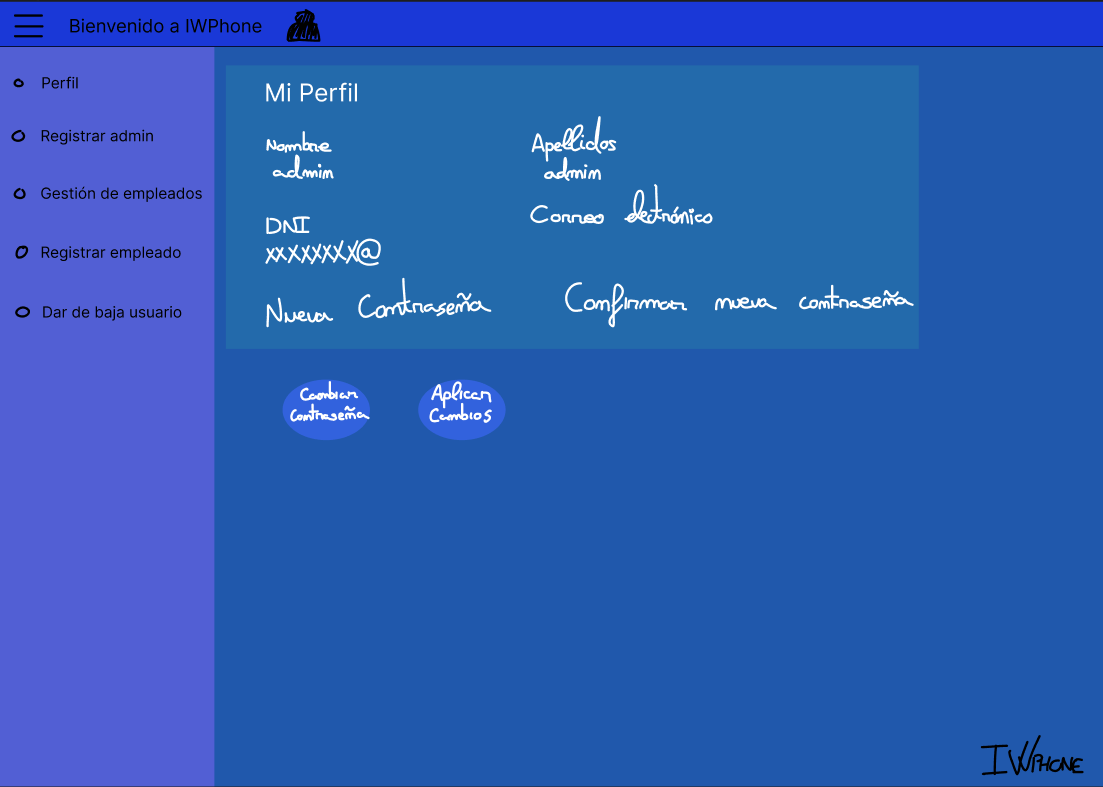 Bienvenido a IWPhone
Perfil
Registrar admin
Gestión de empleados
Registrar empleado
Dar de baja usuario
Mi Perfil
Nombre
admin
Apellidos
admin
DNI
xxXXXXXX@
Correo electrónico
Nueva Contraseña
Confirmar nueva contraseña
Cambiar
Contraseña
Aplicar
Cambios
IWPHONE